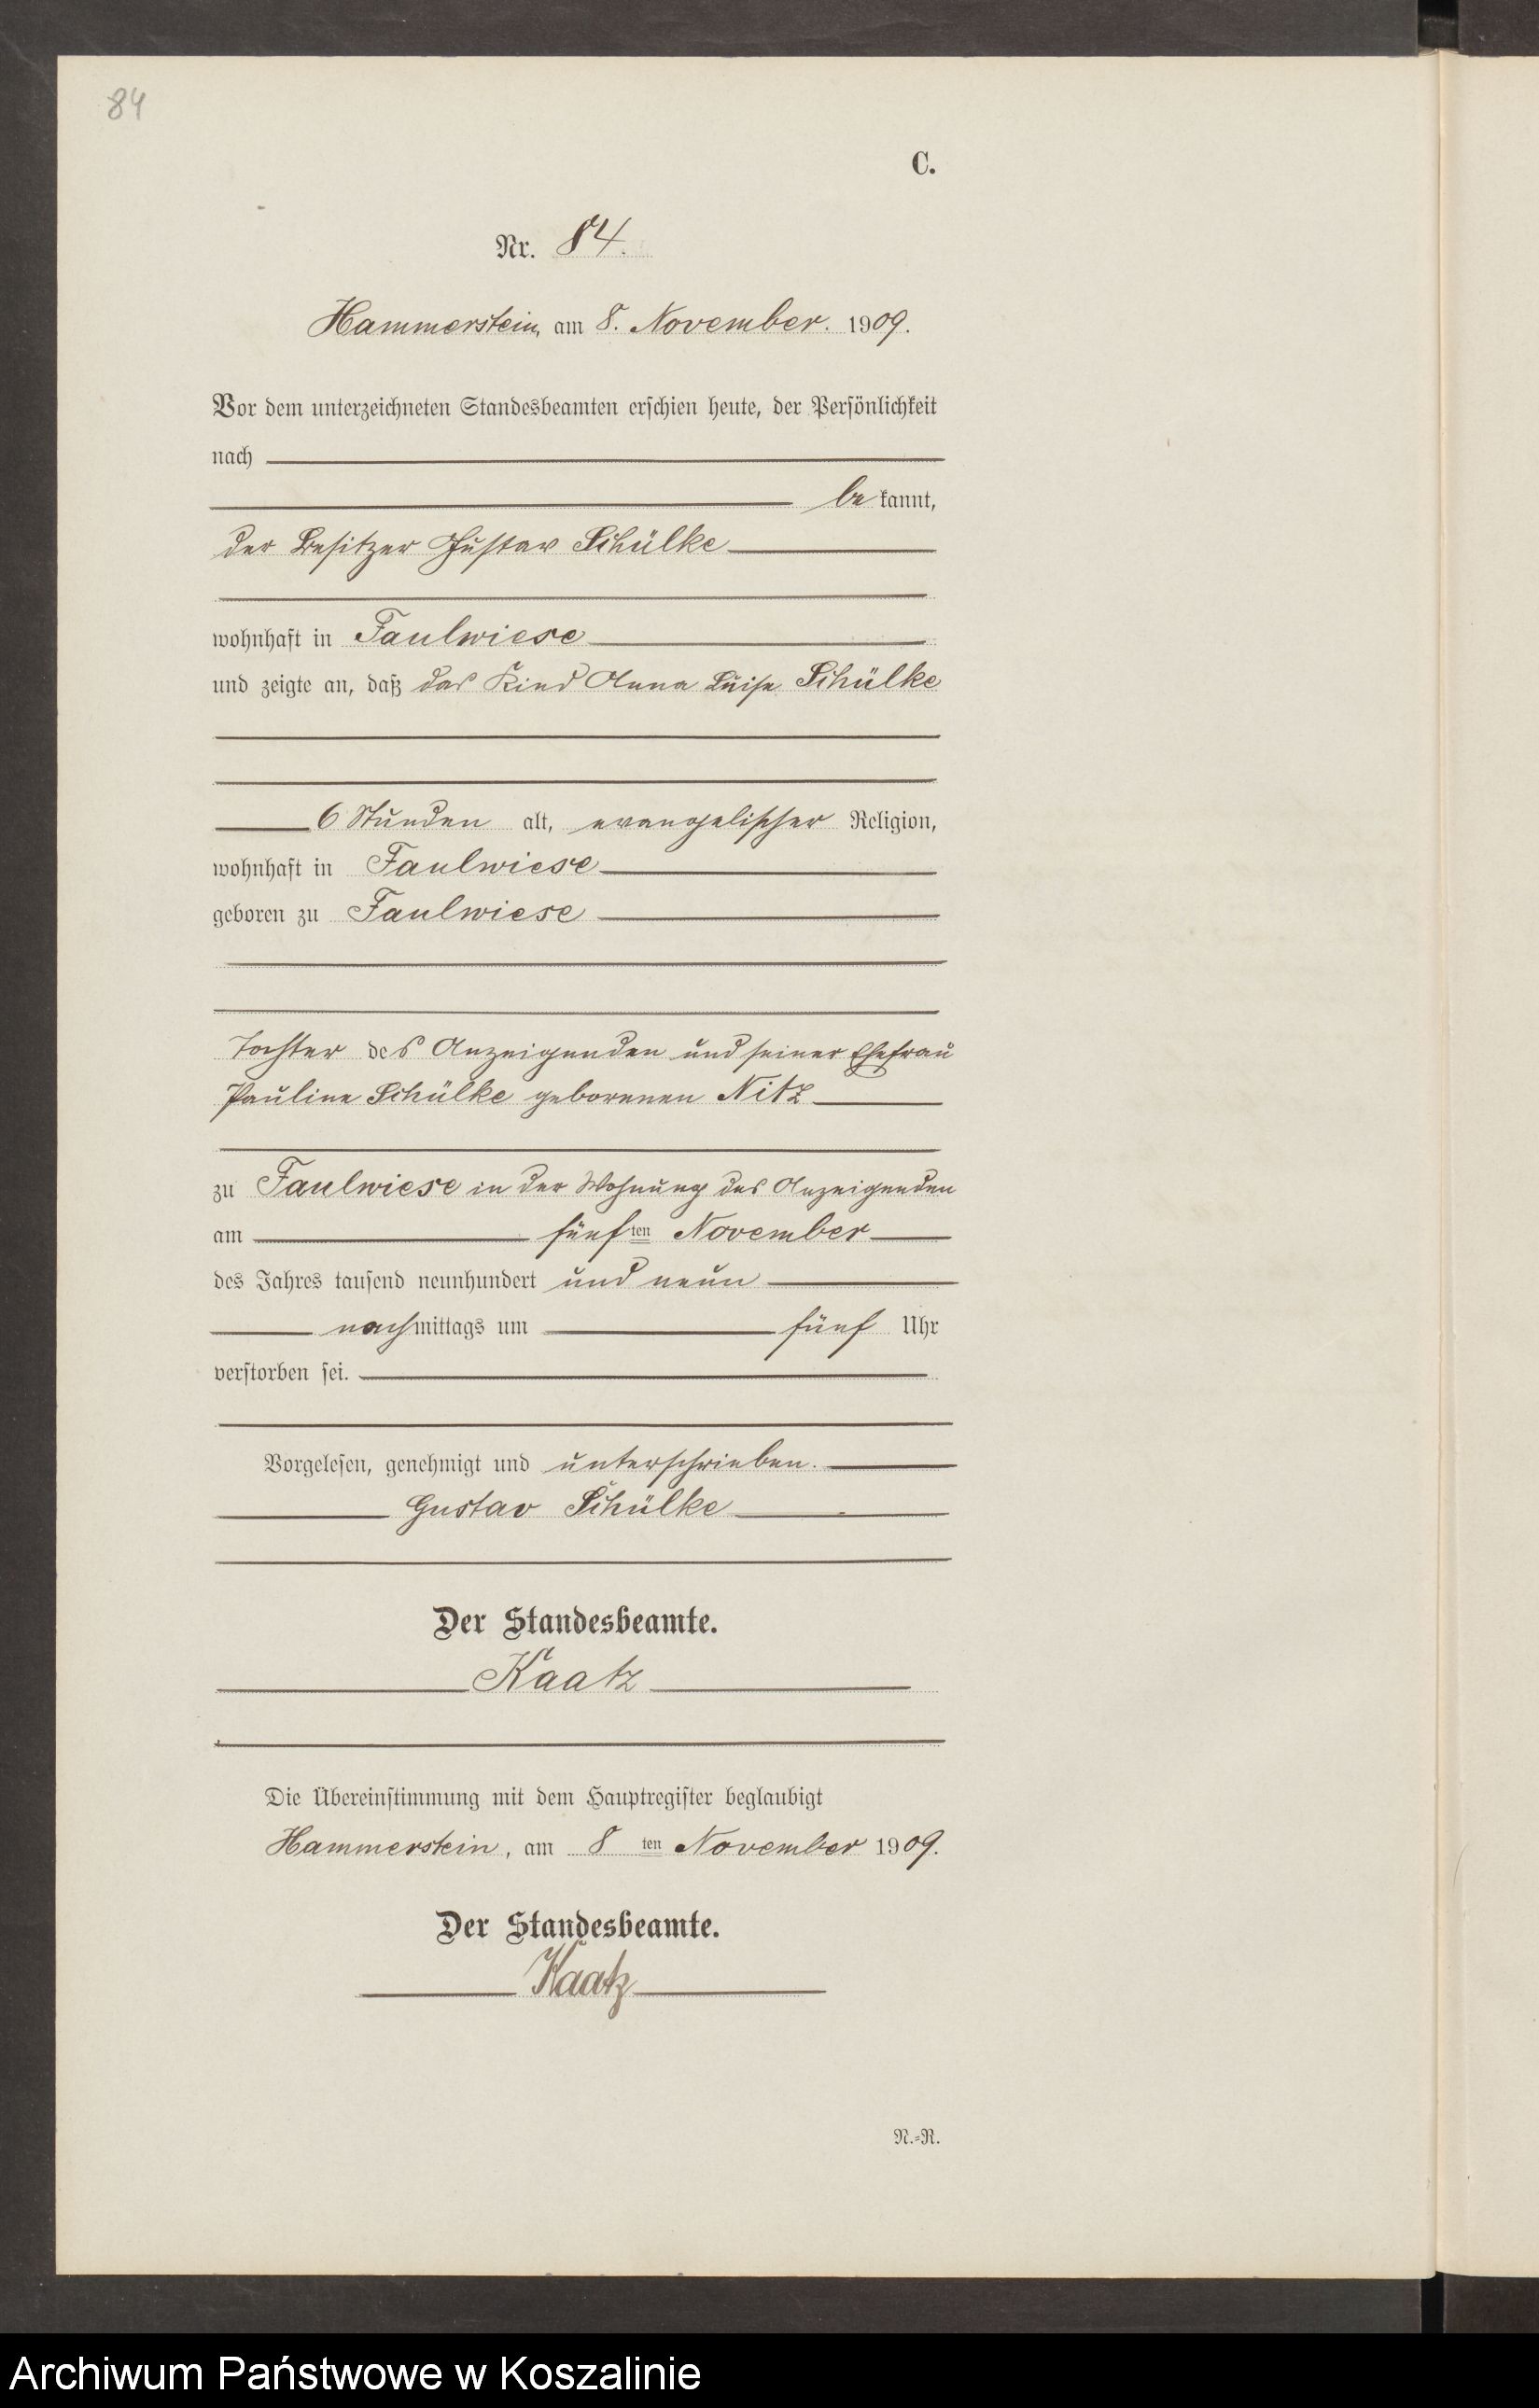 84
C.
Nr. 84.
Hammerstein, am 8. November. 1909.
Vor dem unterzeichneten Standesbeamten erschien heute, der Persönlichkeit
nach
be kannt,
der Besitzer Gustav Schülke
wohnhaft in Faulwiese
und zeigte an, daß das Kind Anna Luise Schülke
6 Stunden alt, evangelischer Religion,
wohnhaft in Faulwiese
geboren zu Faulwiese
Tochter des Anzeigenden und seiner Ehefrau
Pauline Schülke geborenen Nitz
zu Faulwiese in der Wohnung des Anzeigenden
am fünf ten November
des Jahres tausend neunhundert und neun
nachmittags um fünf Uhr
verstorben sei.
Vorgelesen, genehmigt und unterschrieben.
Gustav Schülke
Der Standesbeamte.
Kaatz
Die Übereinstimmung mit dem Hauptregister beglaubigt
Hammerstein, am 8 ten November 1909.
Der Standesbeamte.
Kaatz
N.-R.
Archiwum Państwowe w Koszalinie